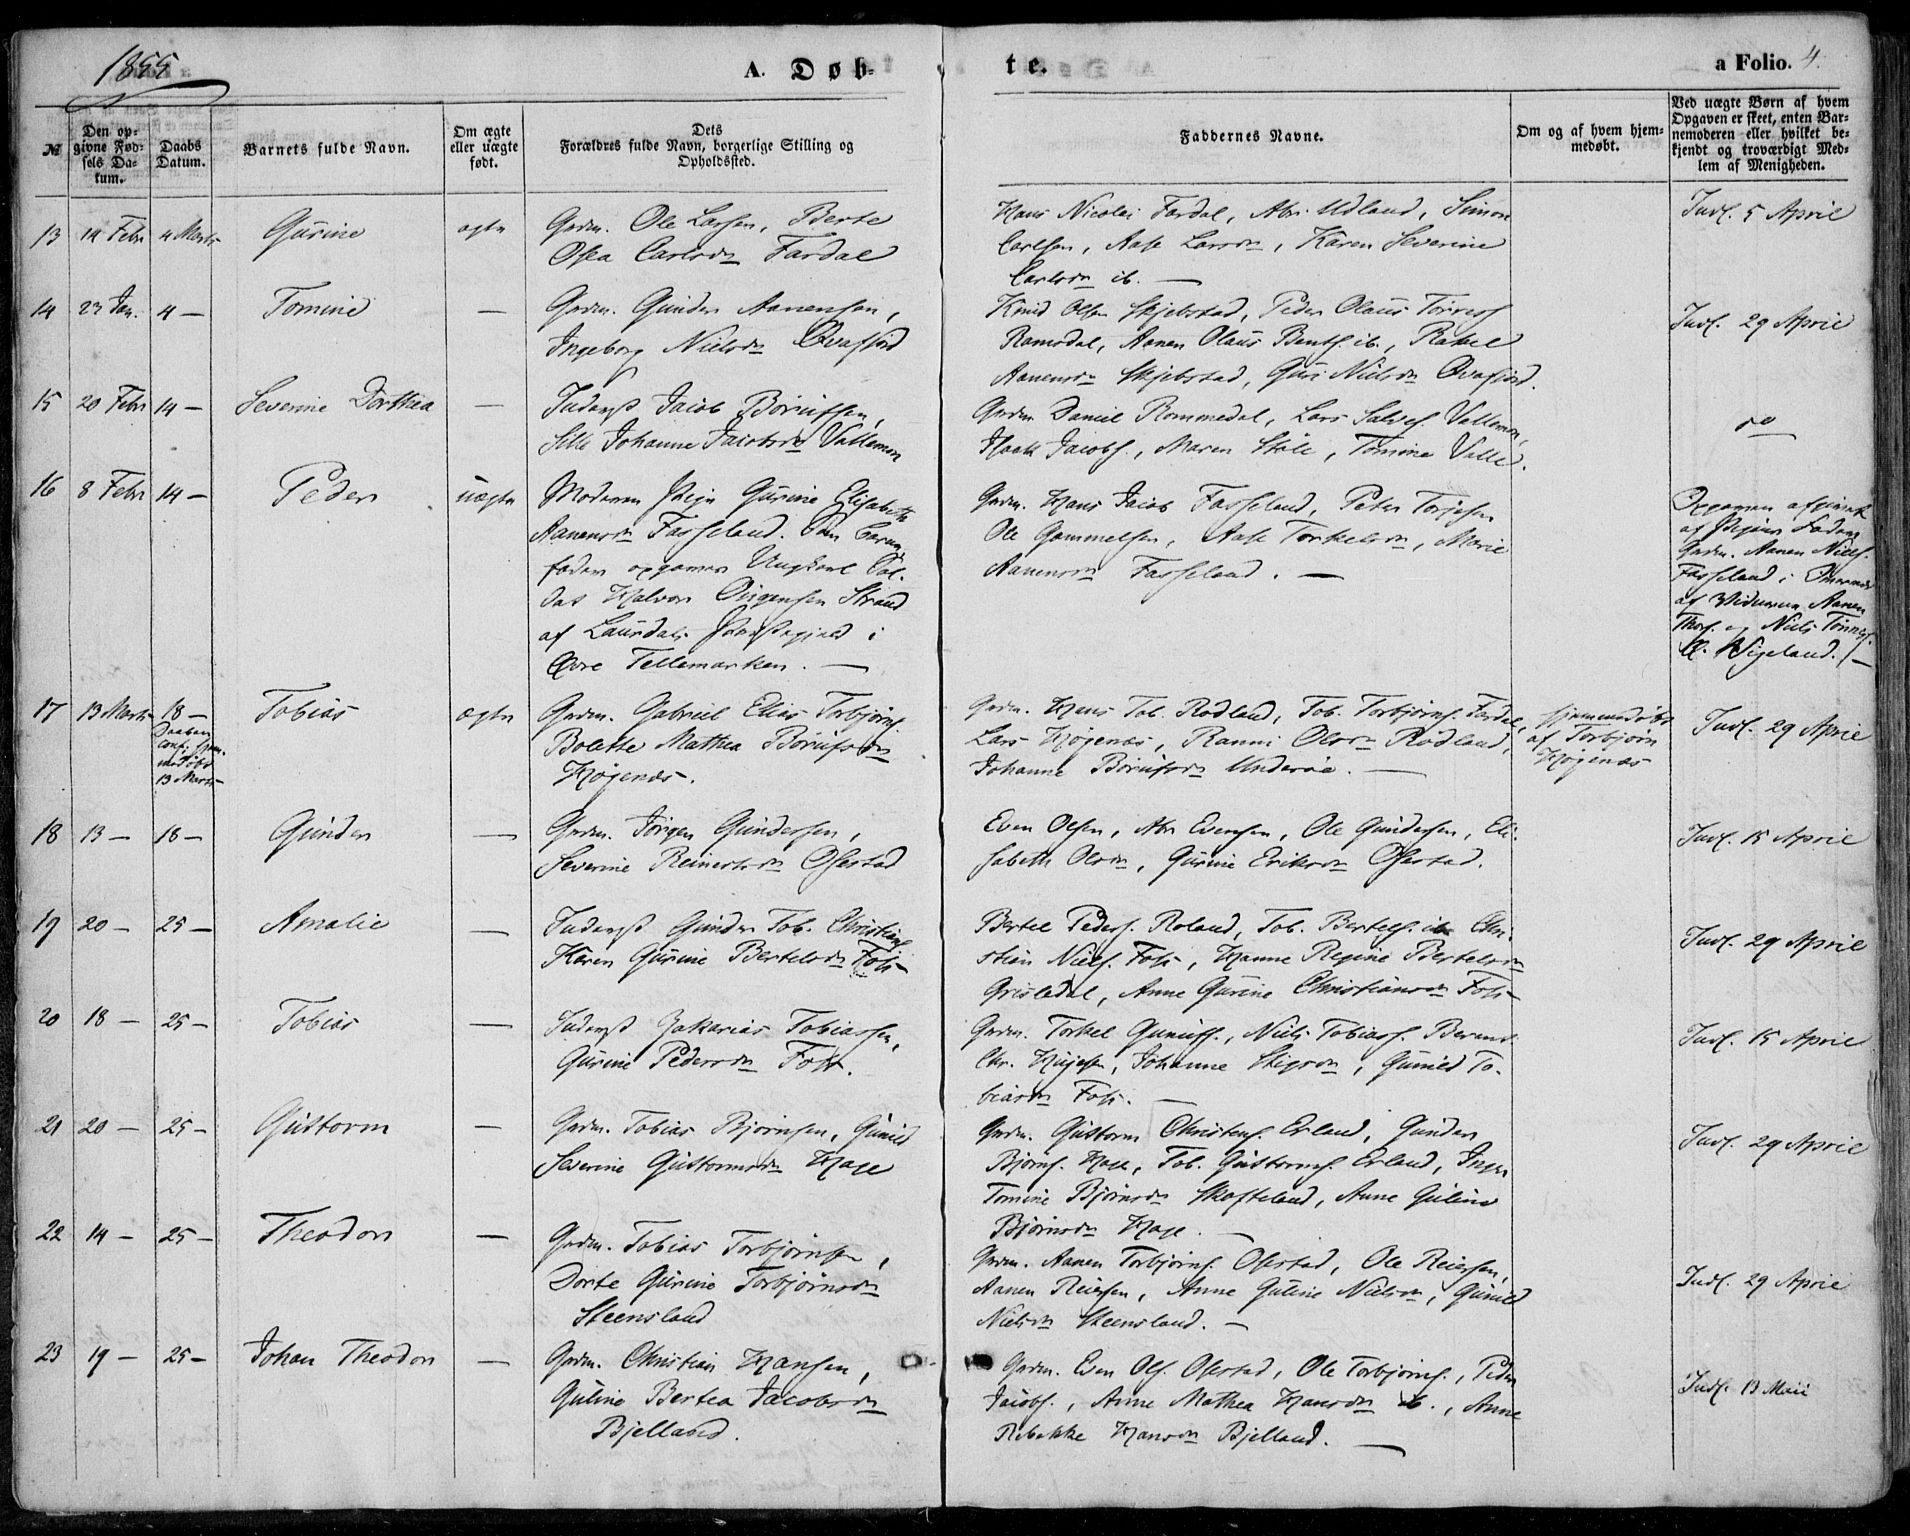 1855
A. Døb-
te.
a Folio. 4.
№
Den op-
givne Fød-
sels Da-
tum.
Daabs
Datum.
Barnets fulde Navn.
Om ægte
eller uægte
født.
Dets
Forældres fulde Navn, borgerlige Stilling og
Opholdssted.
Faddernes Navne.
Om og af hvem hjem-
medøbt.
Ved uægte Børn af hvem
Opgaven er skeet, enten Bar-
nemoderen eller hvilket be-
kjendt og troværdigt Med-
lem af Menigheden.
13 14 Febr 4 Marts Gurine ægte
Grdm. Ole Larsen, Berte
Osea Carlsdr Fardal
Hans Nicolai Fardal, Abr. Udland, Simon
Carlsen, Aase Larsdr, Karen Severine
Carlsdr ib. —
Indf. 5 April
14 23 Jan. 4 — Tomine —
Grdm. Gunder Aanensen,
Ingeborg Nielsdr Qvafjord
Knud Olsen Skjebstad, Peder Olaus Tørress
Ramsdal, Aanen Olaus Bents. ib., Rakel
Aanensdr Skjebstad, Guri Nielsdr Qvafjord.
Indf. 29 April
15 20 Febr 14 — Severine Dorthea —
Inderst Jacob Børufsen,
Sille Johanne Jacobsdr Vallemon
Grdm Daniel Rommedal, Lars Salves. Vallemon,
Isaak Jacobs., Maren Støle, Tomine Valle.
do
16 8 Febr 14 — Peder uægte
Moderen Pige Gurine Elisabeth
Aanensdr Fasseland. Som Barne
fader opgives Ungkarl Sol-
dat Halvor Dirgensen Strand
af Laurdals Præstegjeld i
Øvre Tellemarken. —
Grdm. Hans Jacob Fasseland, Peter Torjesen
Ole Gammelsen, Aase Torkelsdr, Marie
Aanensdr Fasseland. —
Opgaven afgivet
af Pigens Fader
Grdm. Aanen Niels.
Fasseland i Overvær
af Vidnerne Aanen
Thors. og Niels Tønnes.
Ll. Vigeland. —
17 13 Marts 18 — Tobias ægte
Daaben
conf. hjem-
medøbt
13 Marts
Grdm. Gabriel Elias Torbjørns.
Bolette Mathea Børufsdr
Høgenæs.
Grdm. Hans Tob. Rødland, Tob. Torbjørns. Fardal,
Lars Høgenæs, Ranni Olsdr Rødland,
Johanne Børufsdr Underøe. —
hjemmedøbt
af Torbjørn
Høgenæs
Indf. 29 April
18 13 — 18 — Gunder —
Grdm. Jörgen Gundersen,
Severine Reinertsdr Ofestad
Even Olsen, Abr Evensen, Ole Gundersen, Eli-
sabeth Olsdr, Gurine Eriksdr Ofestad.
Indf. 15 April
19 20 — 25 — Amalie —
Inderst Gunder Tob. Christians.
Karen Gurine Bertelsdr Foss
Bertel Peders. Roland, Tob. Bertels. ib Chri-
stian Niels. Foss, Hanne Regine Bertelsdr
Grisledal, Anne Gurine Christiansdr Foss
Indf. 29 April
20 18 — 25 — Tobias —
Inderst Zakarias Tobiassen,
Gurine Pedersdr Foss.
Grdm. Torkel Gunufs., Niels Tobiass. Berent
Chr. Hujesen, Johanne Stigsdr, Gunild To-
biasdr Foss. —
Indf. 15 April
21 20 — 25 — Guttorm —
Grdm. Tobias Bjørnsen, Gunild
Severine Guttormsdr Hage
Grdm. Guttorm Christens. Erland, Gunder
Bjørns. Hage, Tob. Guttorms. Erland, Inger
Tomine Bjørnsdr Skofteland, Anne Guline
Bjørnsdr Hage. —
Indf. 29 April
22 14 — 25 — Theodor —
Grdm. Tobias Torbjørnsen,
Dorte Gurine Torbjørnsdr
Steensland
Grdm. Aanen Torbjørns. Ofestad, Ole Reiersen,
Aanen Reiersen, Anne Guline Nielsdr, Gunild
Nielsdr Steensland. —
Indf. 29 April
23 19 — 25 — Johan Theodor —
Grdm. Christian Hansen,
Guline Bertea Jacobsdr
Bjelland.
Grdm. Even Ols. Ofestad, Ole Torbjørns., Peder
Jacobs., Anne Mathea Hansdr ib., Anne
Rebekke Hansdr Bjelland. —
Indf. 13 Mai